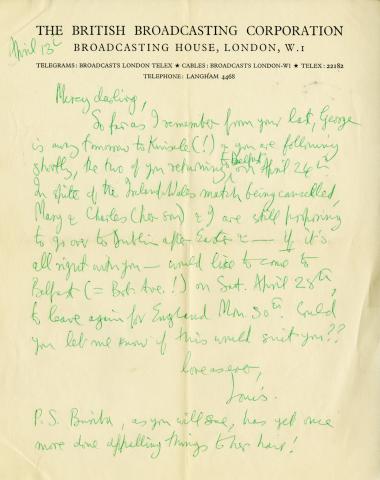 THE BRITISH BROADCASTING CORPORATION
BROADCASTING HOUSE, LONDON, W.1
TELEGRAMS: BROADCASTS LONDON TELEX ★ CABLES: BROADCASTS LONDON-W1 ★ TELEX: 22182
TELEPHONE: LANGHAM 4468
April 13th
Mercy darling,
So far as I remember from your last, George
is away tomorrow to Kinsale (!) & you are following
shortly, the two of you returning to Belfast on April 24th.
In spite of the Ireland-Wales match being cancelled,
Mary & Charles (her son) & I are still proposing
to go over to Dublin after Easter & — If it's
all right with you — would like to come to
Belfast (= Bob. Ave.!) on Sat. April 28th,
to leave again for England Mon. 30th. Could
you let me know if this would suit you??
love as ever,
Louis.
P.S. , as you will see, has yet once
more done appalling things to her hair!